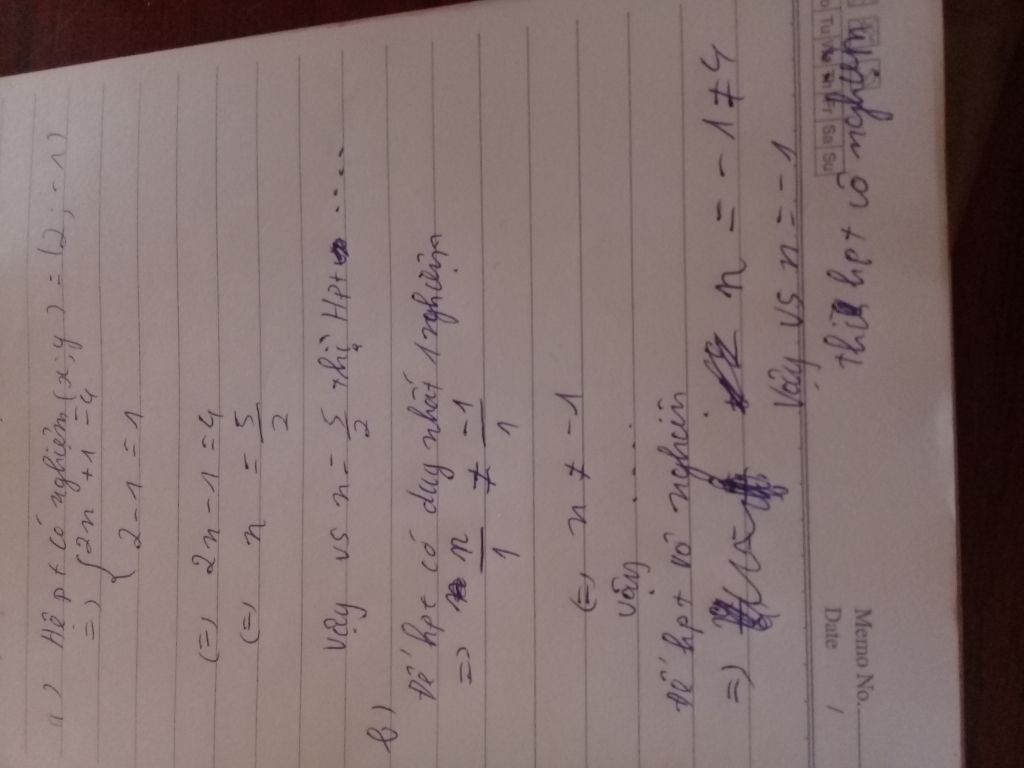 a) Hệ pt có nghiệm (x;y) = (2;-1)
=) { 2n +1 =4
2-1 =1
(=) 2n-1=4
(=) n = 5/2
Vậy vs n= 5/2 thì Hpt ....
b)
Để hpt có duy nhất 1 nghiệm
=) n/1 ≠ -1/1
(=) n ≠ -1
Vậy .....
Để hpt vô nghiệm
=) n = -1 ≠ 4
Vậy vs n = -1
thì hpt vô nghiệm
Memo No.
Date /
Tu Fr Sa Su